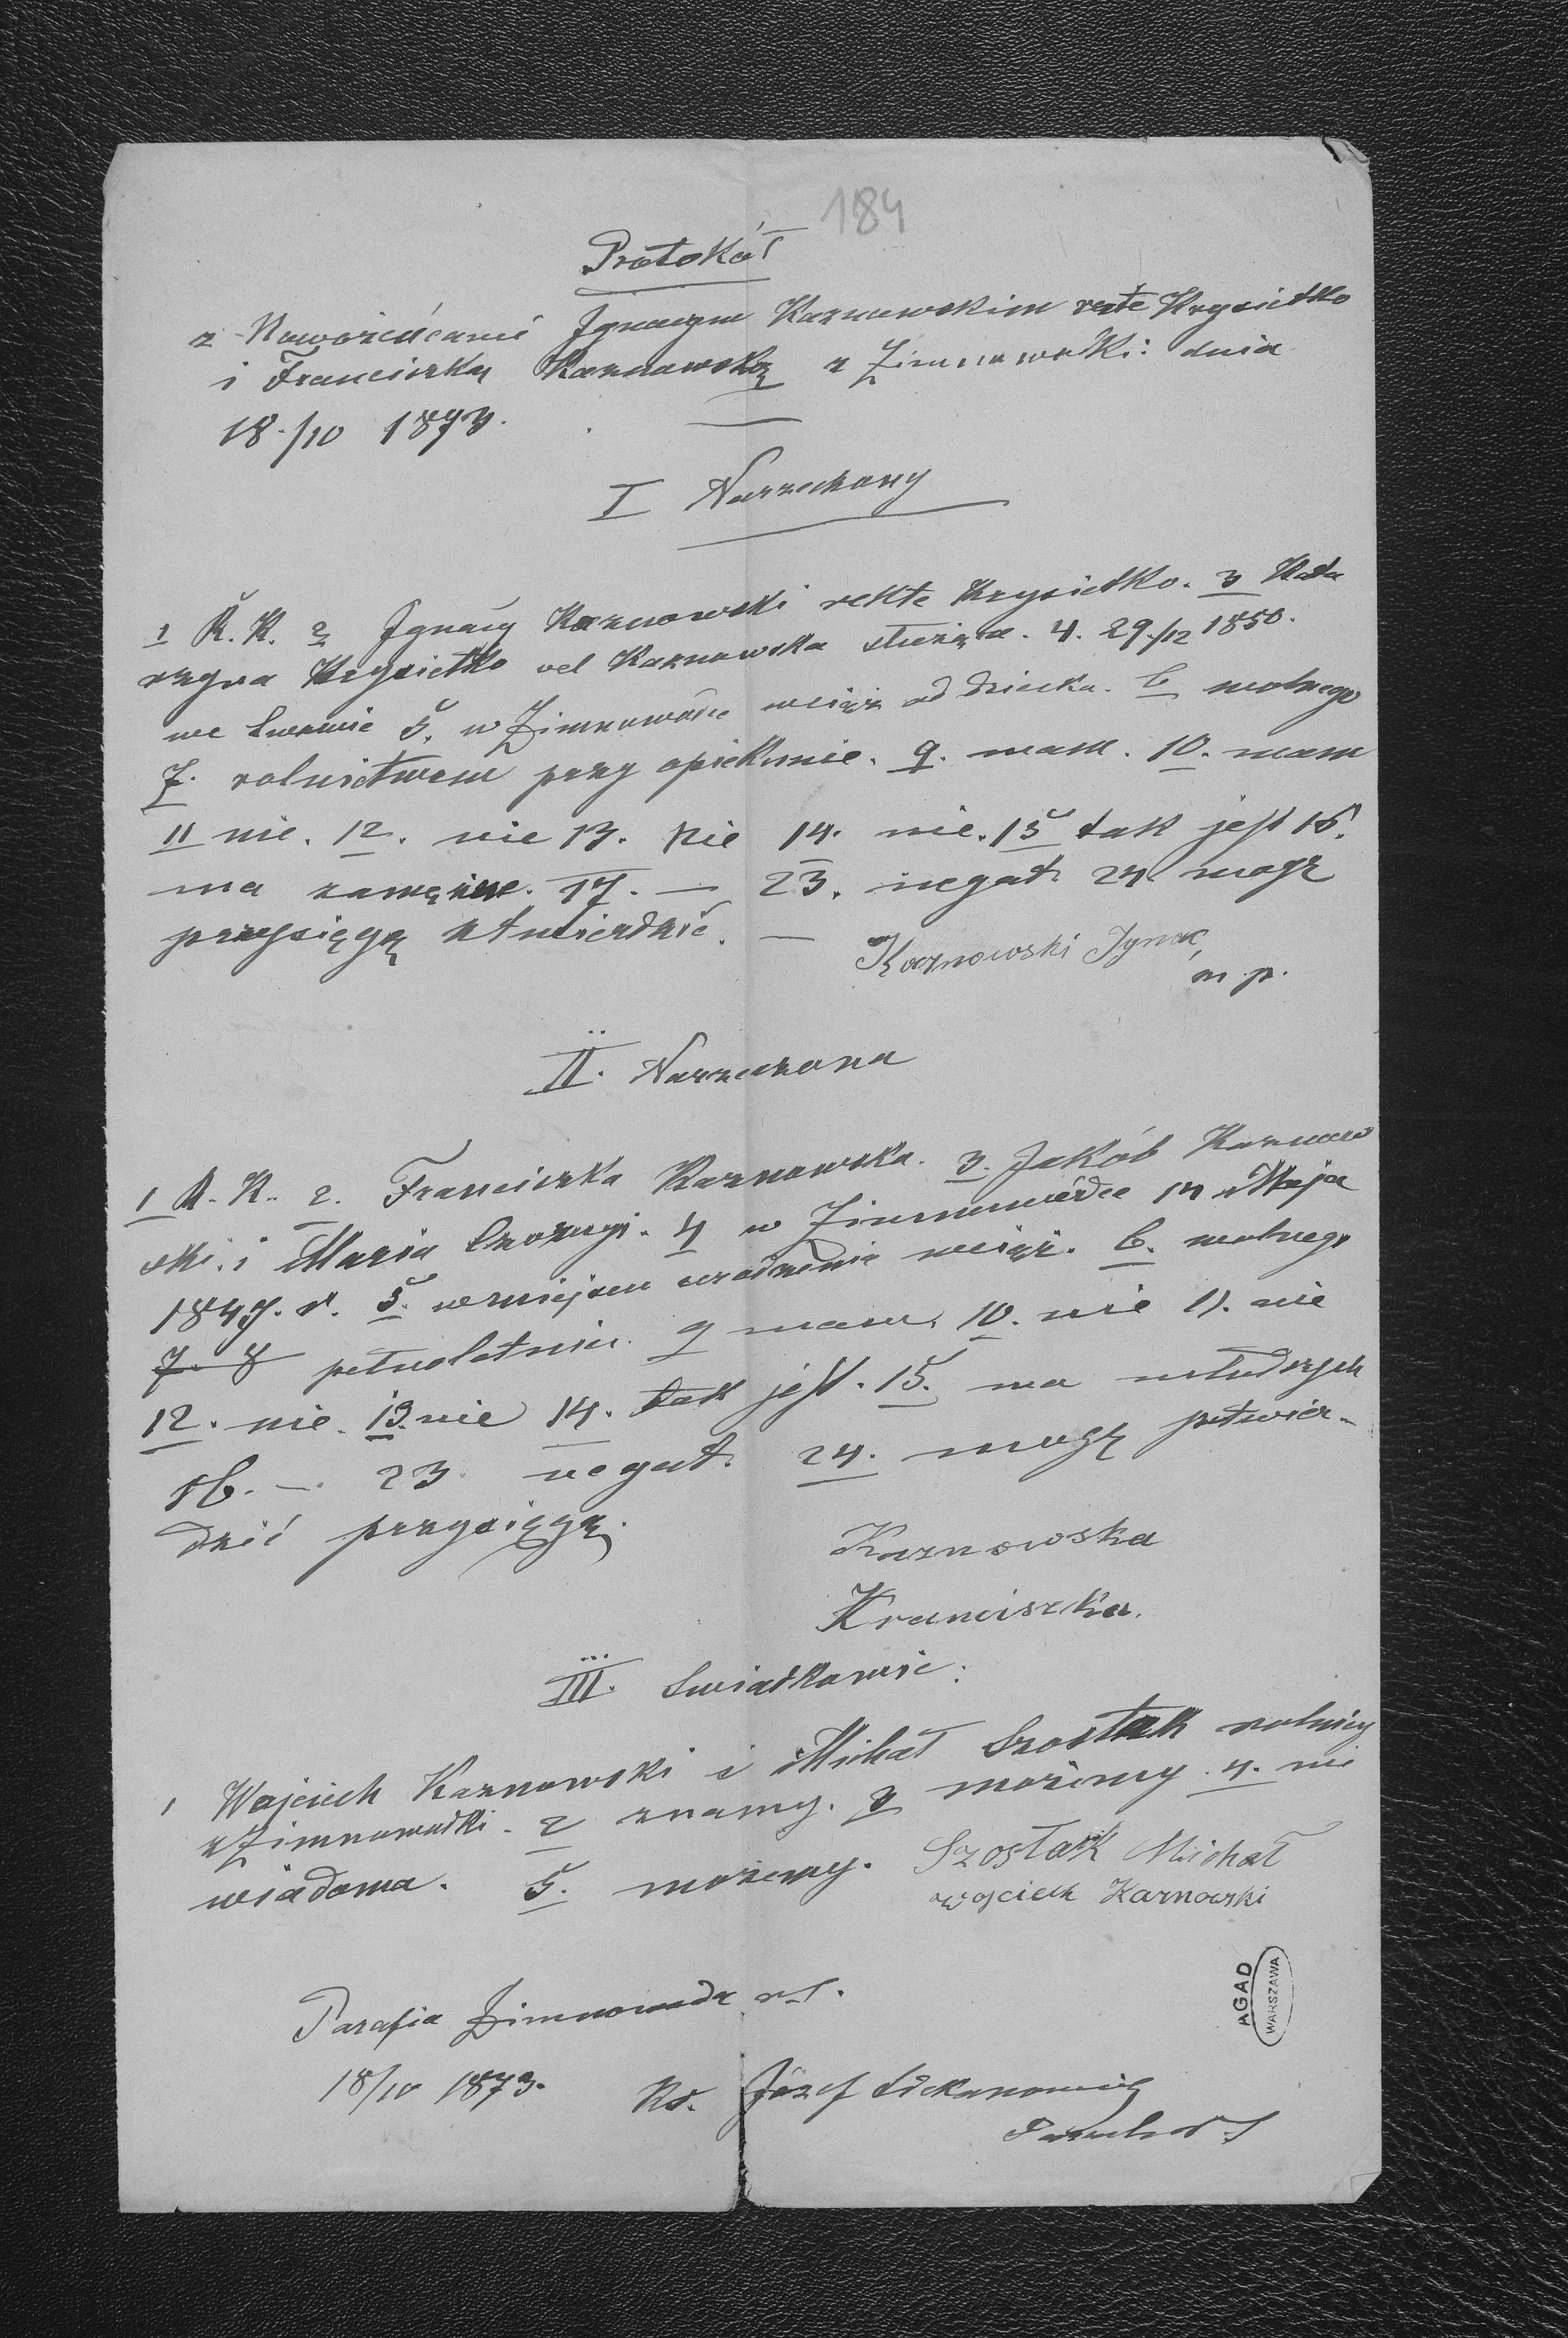 184
Protokół
z Nowożeńcami Ignacym Karnowskim recte Krysietko
i Franciszką Karnowską z Zimnowódki: dnia
18./10 1873.
I Narzeczony
1 R. K. 2 Ignacy Karnowski rekte Krysietko. 3 Kata
rzyna Krysietko vel Karnowska służąca. 4. 29./12 1850.
we Lwowie 5. w Zimnowódce wciąż od dziecka. 6 wolnego
7. rolnictwem przy opiekunie. 9. mam. 10. mam
11 nie. 12. nie 13. nie 14. nie. 15 tak jest 16.
ma zamężne. 17. — 23. negat. 24. mogę
przysięgą stwierdzić. —
Karnowski Ignac
m. p.
II. Narzeczona
1 R. K. 2. Franciszka Karnowska. 3. Jakób Karnow
ski. i Maria 4 w Zimnowódce 14 Maja
1847. r. 5. w miejscu urodzenia wciąż. 6. wolnego
7. 8 pełnoletnia. 9 mam. 10. nie 11. nie
12. nie. 13. nie 14. tak jest. 15. ma młodszych
16. — 23 negat. 24. mogę potwier-
dzić przysięgą.
Karnowska
Kranciszka.
III. Swiadkowie:
1 Wojciech Karnowski i Michał Szostak rolnicy
z Zimnowódki. 2 znamy. 3 możemy. 4. nie
wiadoma. 5. możemy. Szostak Michał
wojciech Karnowski
Parafia Zimnowoda r. l.
18/10 1873. Ks. Józef
AGAD
WARSZAWA